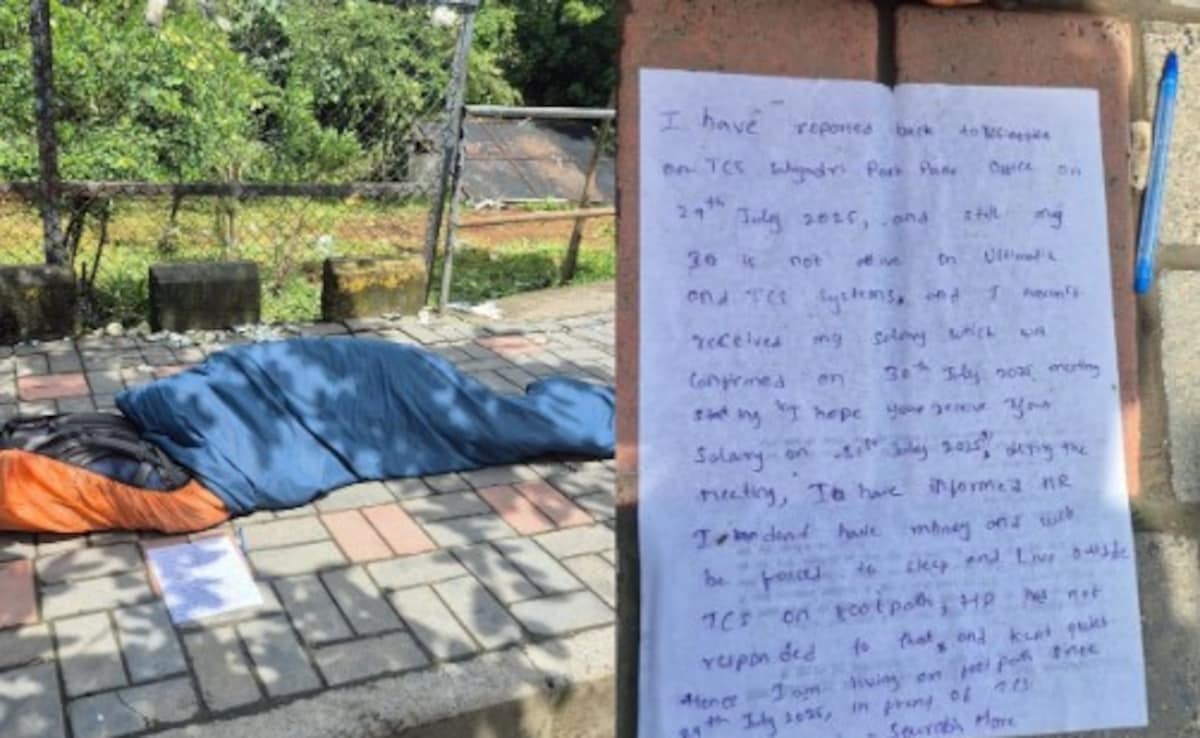 I have reported back to office
on TCS Sahyadri Park Pune Office on
29th July 2025, and still my
ID is not ative in Ultimatix
and TCS systems, and I haven't
received my salary which was
confirmed on 30th July 2025 meeting
stating "I hope your receive your
Salary on 31st July 2025", during the
meeting, I have informed HR
I dont have money and will
be forced to sleep and Live outside
TCS on footpath, HR has not
responded to that, and kept quiet
Hence I am living on foot path since
29th July 2025, in front of TCS
- Saurabh More